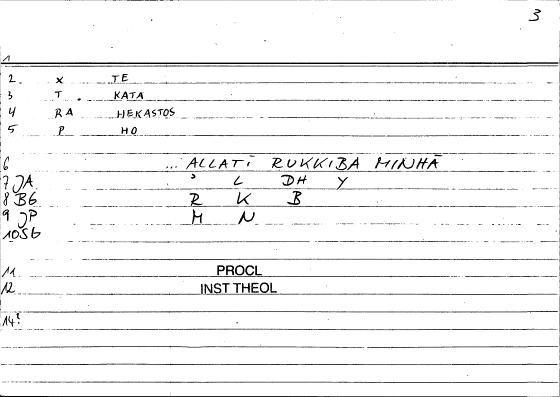 3
1
2 x TE
3 T. KATA
4 RA HEKASTOS
5 P HO
6 ... ALLATĪ RUKKIBA MINHĀ
7 JA ʾ L DH Y
8 BG R K B
9 JP M N
10 SG
11 PROCL
12 INST THEOL
14?